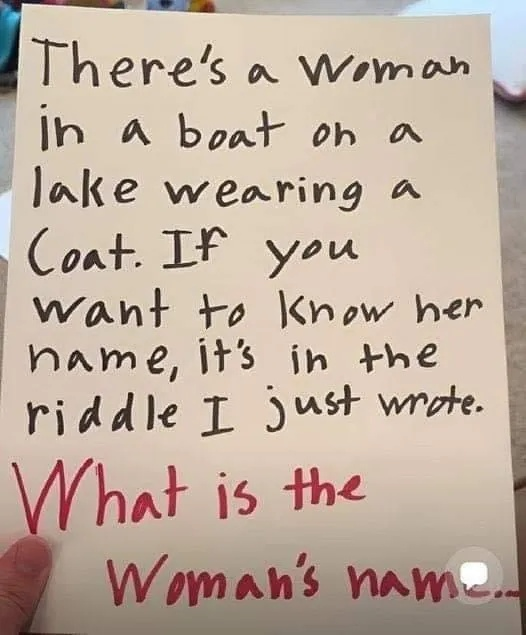 There's a Woman
in a boat on a
lake wearing a
Coat. If you
want to know her
name, it's in the
riddle I just wrote.
What is the
Woman's name...